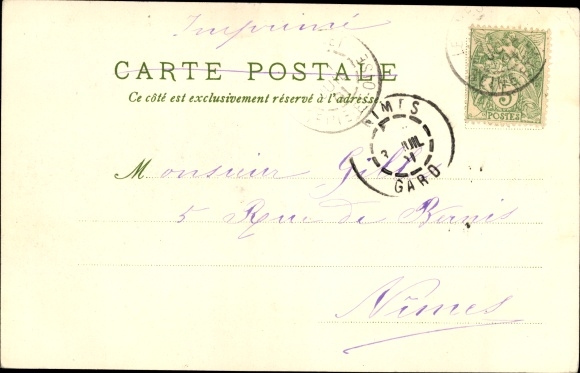 Imprimé
CARTE POSTALE
Ce côté est exclusivement réservé à l'adresse
5
POSTES
NIMES
3 JUIL
GARD
Monsieur
5 Rue de Bernis
Nîmes